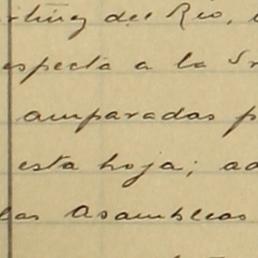 del Rio,
especta a la Sr
amparadas p
esta hoja; ad
las Asambleas